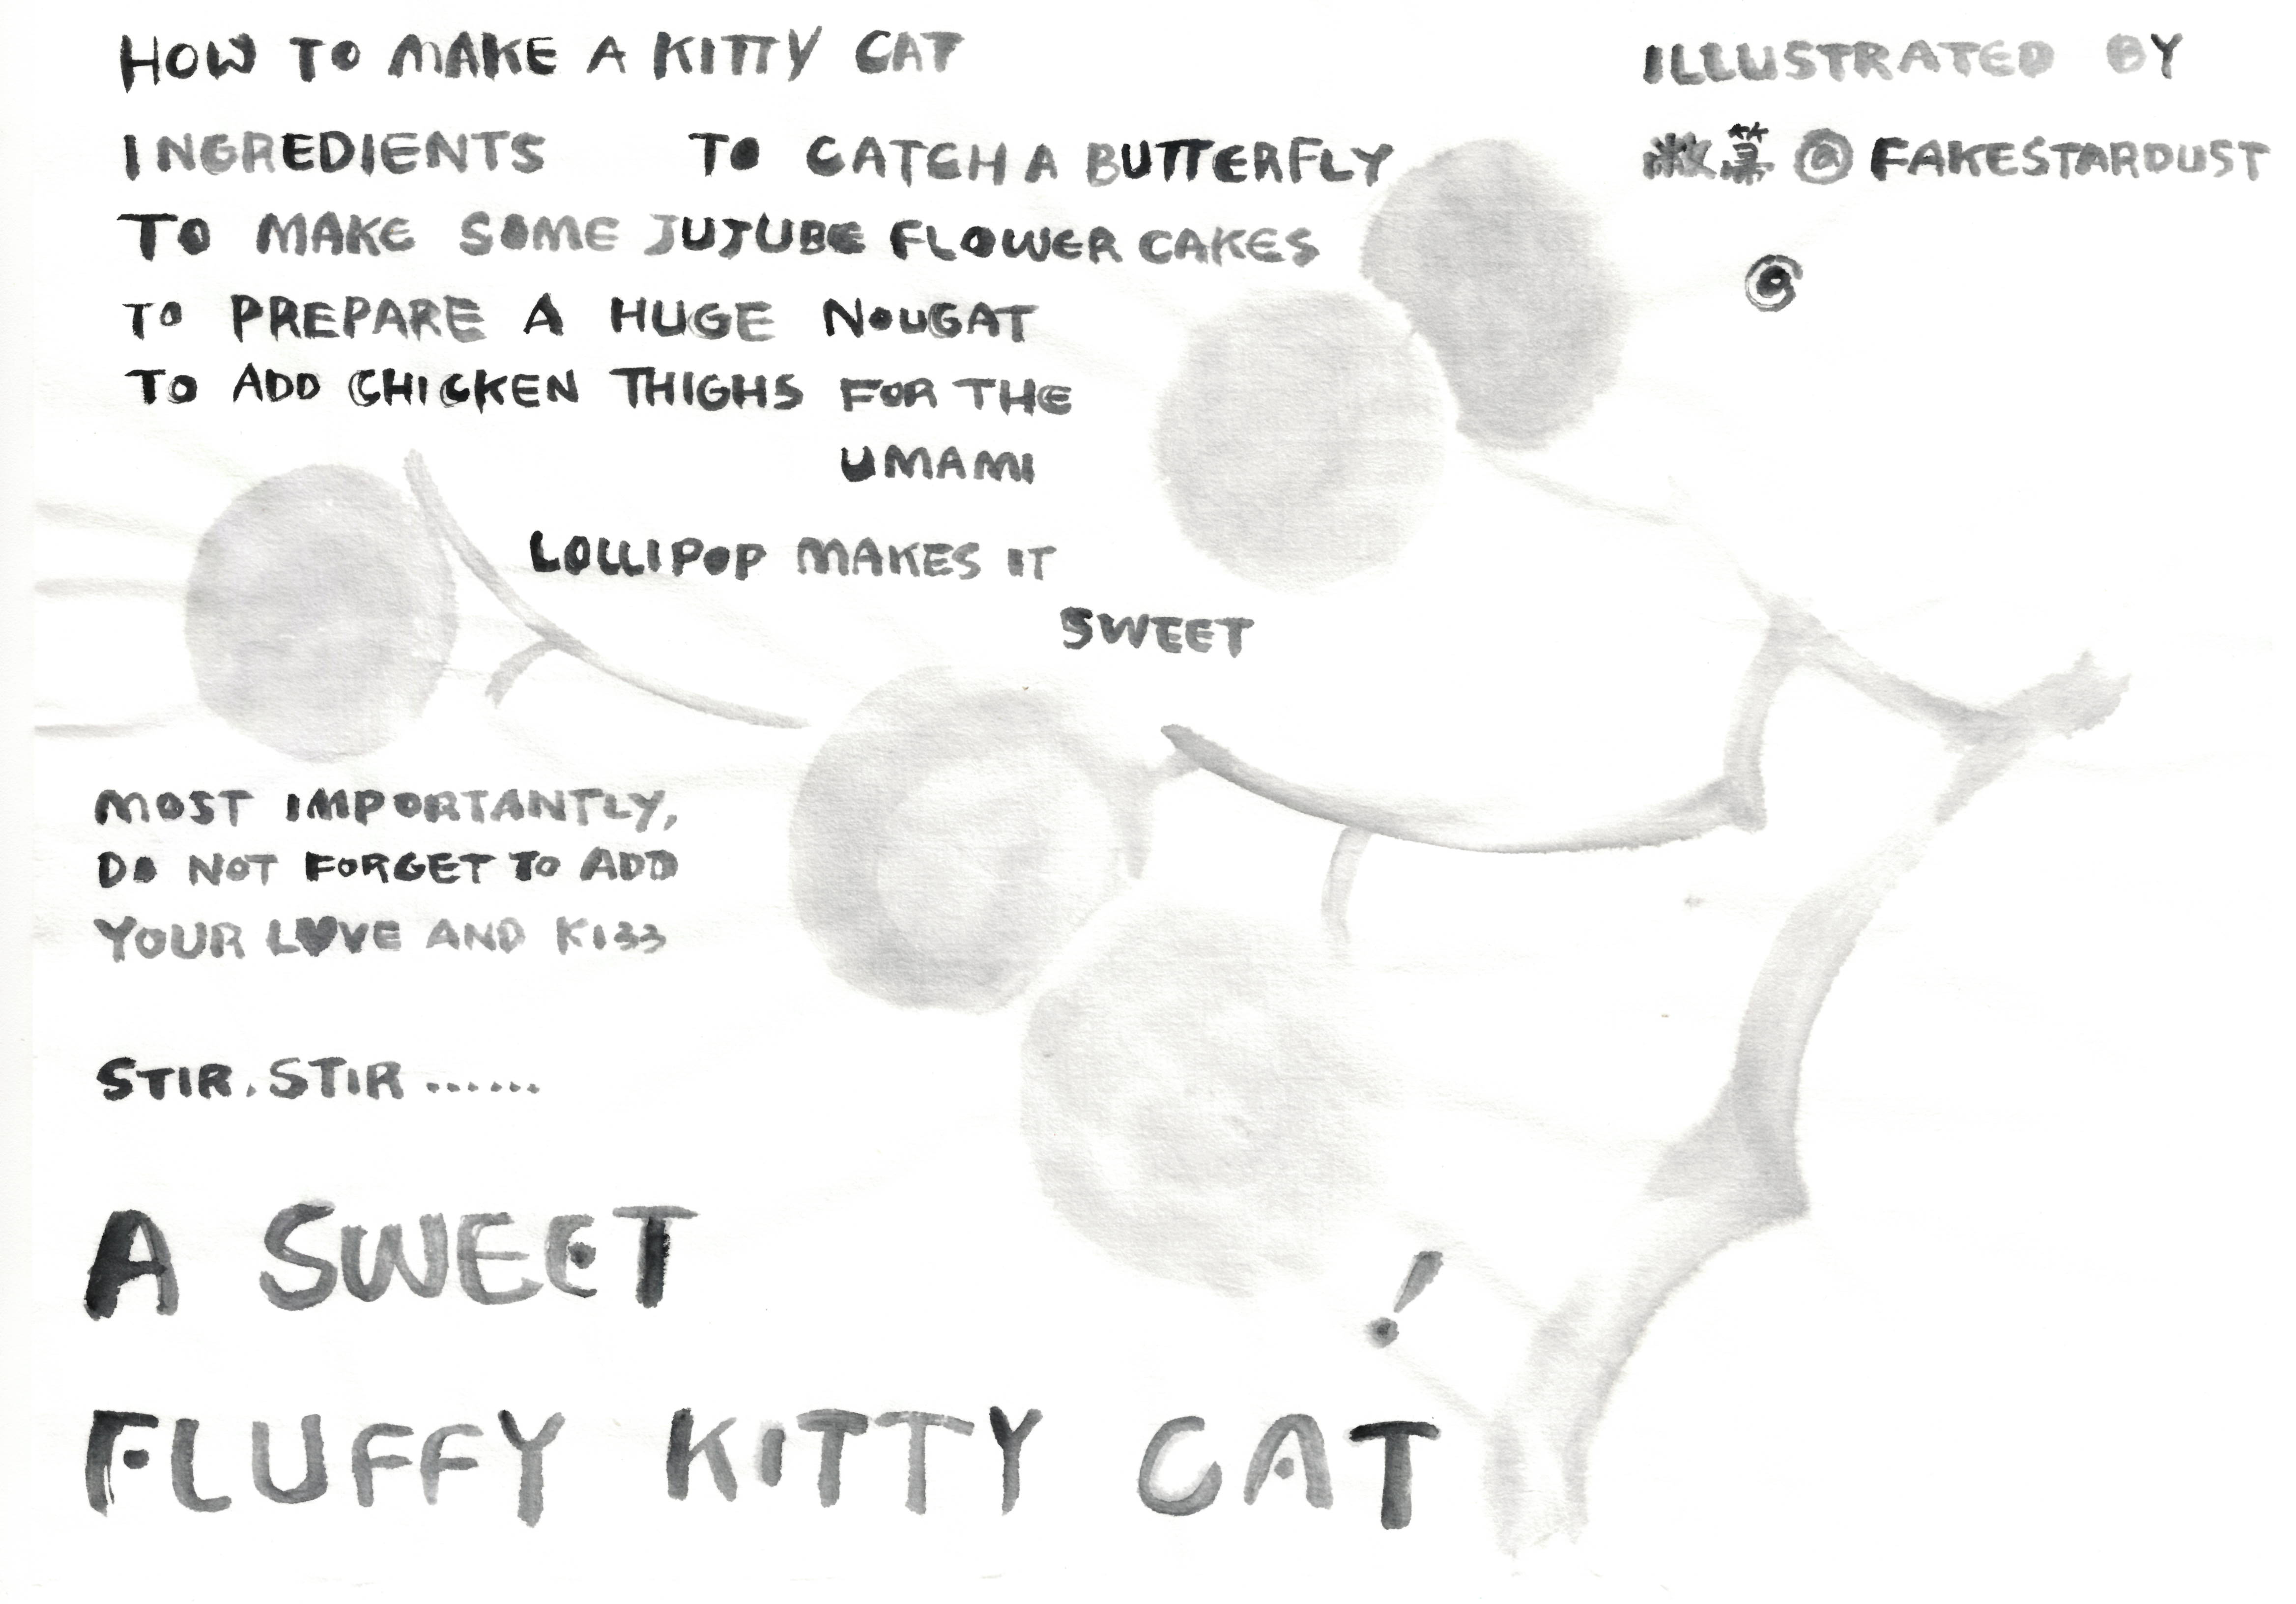 HOW TO MAKE A KITTY CAT
INGREDIENTS TO CATCH A BUTTERFLY
TO MAKE SOME JUJUBE FLOWER CAKES
TO PREPARE A HUGE NOUGAT
TO ADD CHICKEN THIGHS FOR THE
UMAMI
LOLLIPOP MAKES IT
SWEET
MOST IMPORTANTLY,
DO NOT FORGET TO ADD
YOUR L♥VE AND KISS
STIR, STIR ......
A SWEET
FLUFFY KITTY CAT !
ILLUSTRATED BY
@ FAKESTARDUST
@